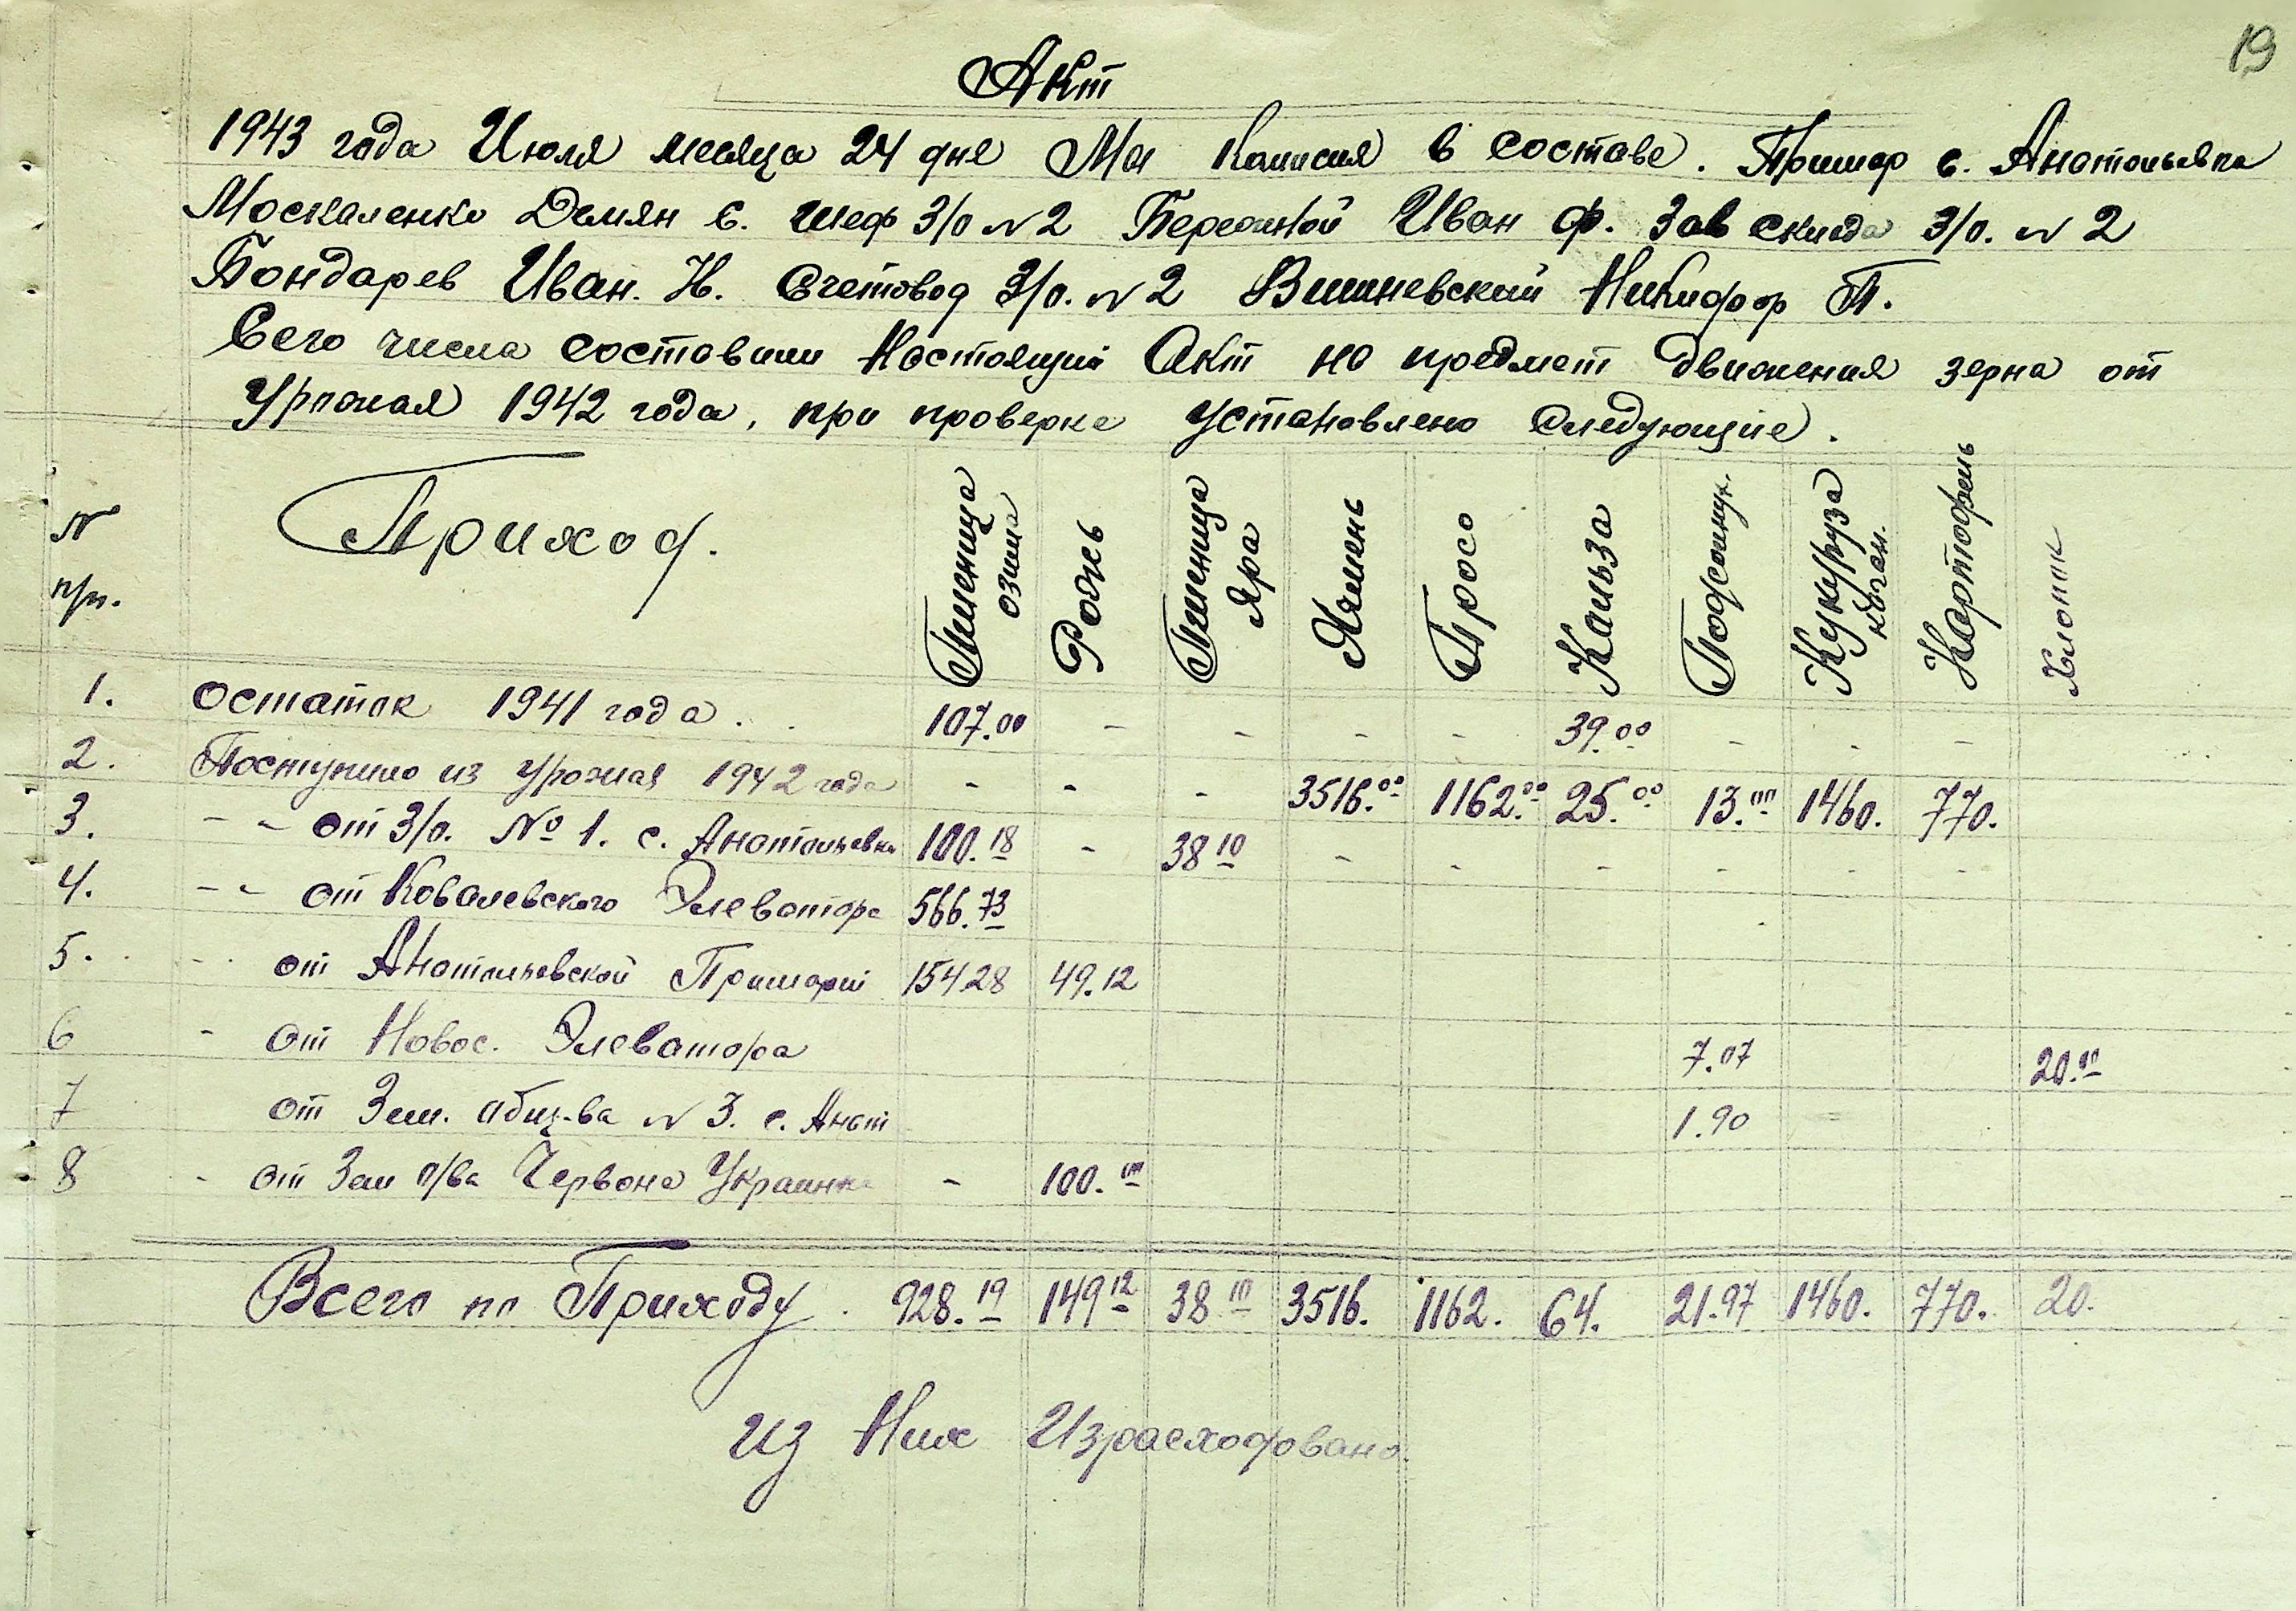 19
Акт
1943 года Июля месяца 24 дня Мы Комисия в составе. Примар с. Анатольевка
Москаленко Демян С. шеф З/о N 2 Иван Ф. Зав склада З/о. N 2
Бондарев Иван. Н. Счетовод З/о. N 2 Вишневский Никифор П.
Сего числа составили Настоящий Акт на предмет движения зерна от
Урожая 1942 года, при проверке установлено следующие.
N п/п. Приход. Пшеница озима Рожь Пшеница Яра Ячмень Просо Кольза Подсолнух. Кукуруза Картофель Хлопок
1. Остаток 1941 года . . 107.00 - - - - 39.00 - - -
2. Поступило из урожая 1942 года - - - 3516.00 1162.00 25.00 13.00 1460. 770.
3. - - от З/о. № 1. с. Анатольевка 100.18 - 38 10 - - - - - -
4. - - от Ковалевского Элеватора 566.73
5. - - от Анатольевской Примарии 154.28 49.12
6 - от Новос. Элеватора 7.07 20.00
7 от Зем. общ-ва N 3. с. Анат 1.90
8 - от Зем о/ва Червона Украинка - 100.00
Всего по Приходу. 928.19 149 12 38 10 3516. 1162. 64. 21.97 1460. 770. 20.
Из Них Израсходовано.